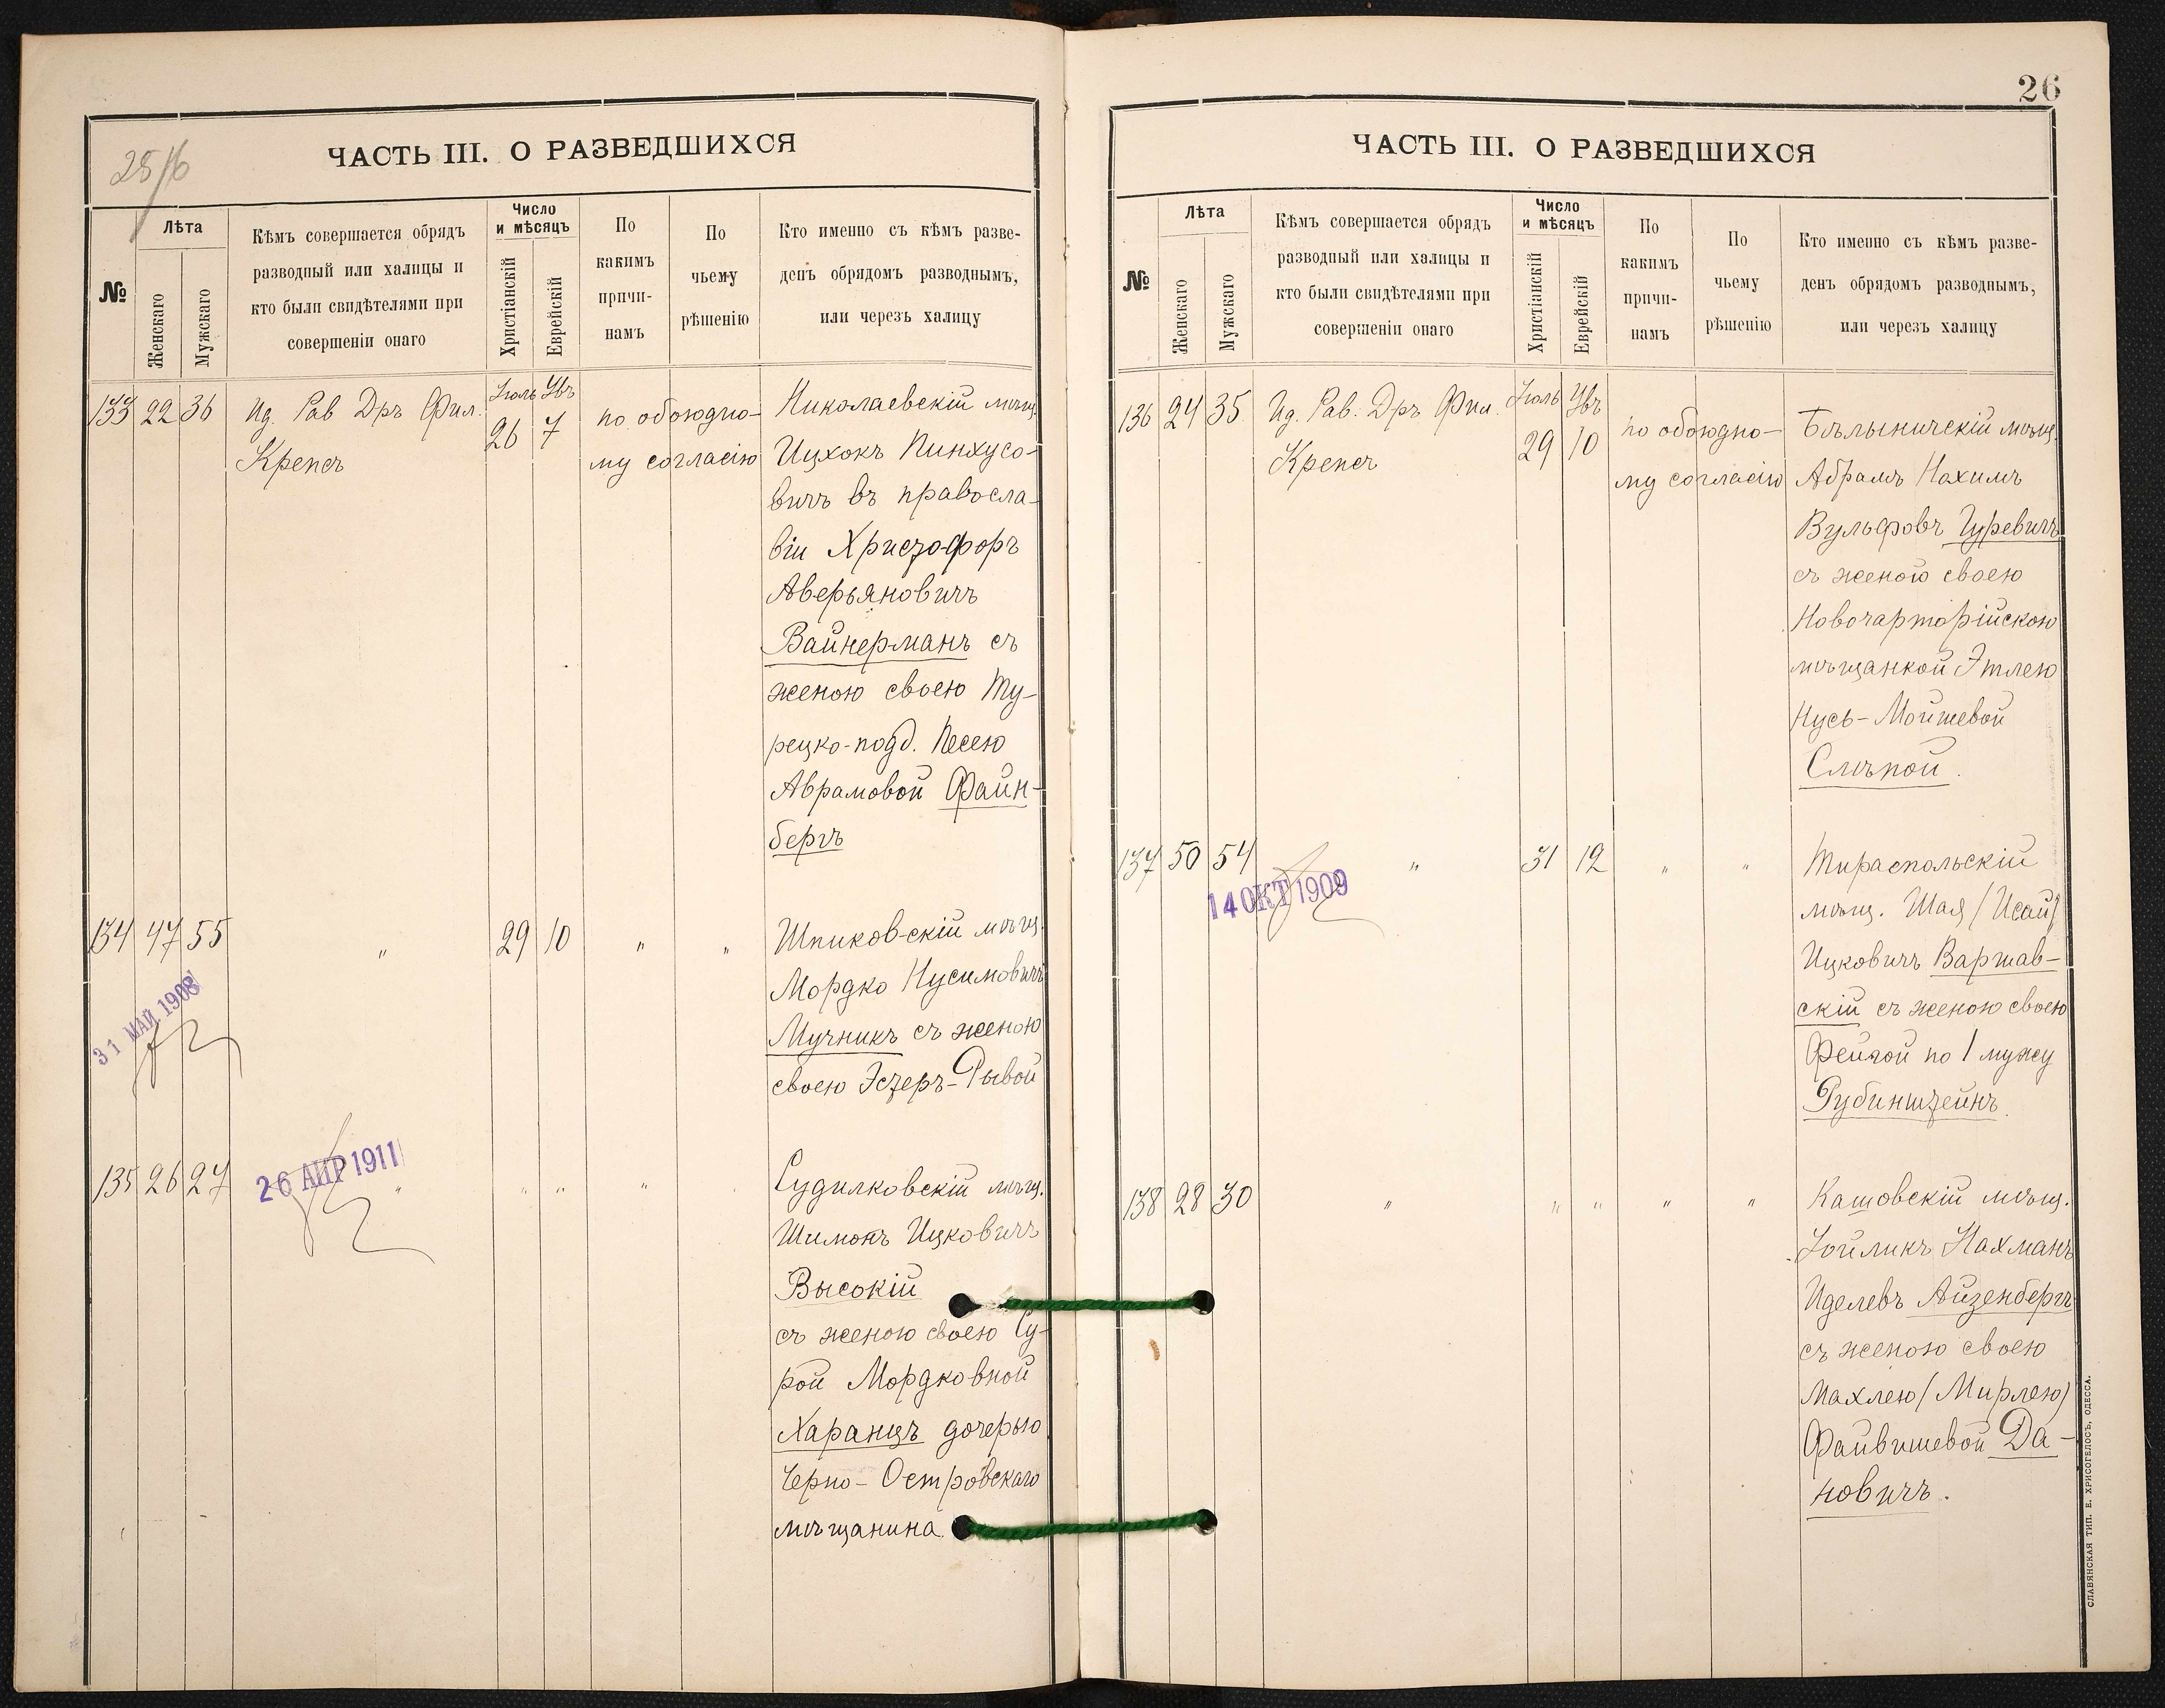 25/6
ЧАСТЬ III. О РАЗВЕДШИХСЯ
№
Лѣта
Женскаго
Мужскаго
Кѣмъ совершается обрядъ
разводный или халицы и
кто были свидѣтелями при
совершеніи онаго
Число
и мѣсяцъ
Христіанскій
Еврейскій
По
какимъ
причи-
намъ
По
чьему
рѣшенію
Кто именно съ кѣмъ разве-
денъ обрядомъ разводнымъ,
или черезъ халицу
133 22 36
Ид. Рав Дръ Фил.
Крепсъ
Іюль
26 7
по обоюдно-
му согласію
Николаевскій мѣщ.
Ицхокъ Пинхусо-
вичъ въ правосла-
віи Христофоръ
Аверьяновичъ
Вайнерманъ съ
женою своею Ту-
рецко-подд. Песею
Аврамовой Файн-
бергъ
134 47 55
"
29 10
" "
Шпиковскій мѣщ.
Мордко Нусимовичъ
Мучникъ съ женою
своею Эстеръ-Рывой
31 МАЙ 1908
135 26 27
26 АПР 1911
" " " "
Судилковскій мѣщ.
Шимонъ Ицковичъ
Высокій
съ женою своею Су-
рой Мордковной
Харанцъ дочерью
Черно-Островскаго
мѣщанина
26
ЧАСТЬ III. О РАЗВЕДШИХСЯ
№
Лѣта
Женскаго
Мужскаго
Кѣмъ совершается обрядъ
разводный или халицы и
кто были свидѣтелями при
совершеніи онаго
Число
и мѣсяцъ
Христіанскій
Еврейскій
По
какимъ
причи-
намъ
По
чьему
рѣшенію
Кто именно съ кѣмъ разве-
денъ обрядомъ разводнымъ,
или черезъ халицу
136 24 35
Ид. Рав. Дръ Фил.
Крепсъ
Іюль
29 10
по обоюдно-
му согласію
Бѣлыничскій мѣщ.
Абрамъ Нахимъ
Вульфовъ Гуревичъ
съ женою своею
Новочарторійскою
мѣщанкой Этлею
Нусь-Мойшевой
Слѣпой.
137 50 54
14 ОКТ 1909
"
31 12
" "
Тираспольскій
мѣщ. Шая (Исай)
Ицковичъ Варшав-
скій съ женою своею
Фейгой по 1 мужу
Рубинштейнъ.
138 28 30
" " " " "
Кашовскій мѣщ.
Іойликъ Нахманъ
Иделевъ Айзенбергъ
съ женою своею
Махлею (Мирлею)
Файвишевой Да-
новичъ.
СЛАВЯНСКАЯ ТИП. Е. ХРИСОГЕЛОСЪ, ОДЕССА.